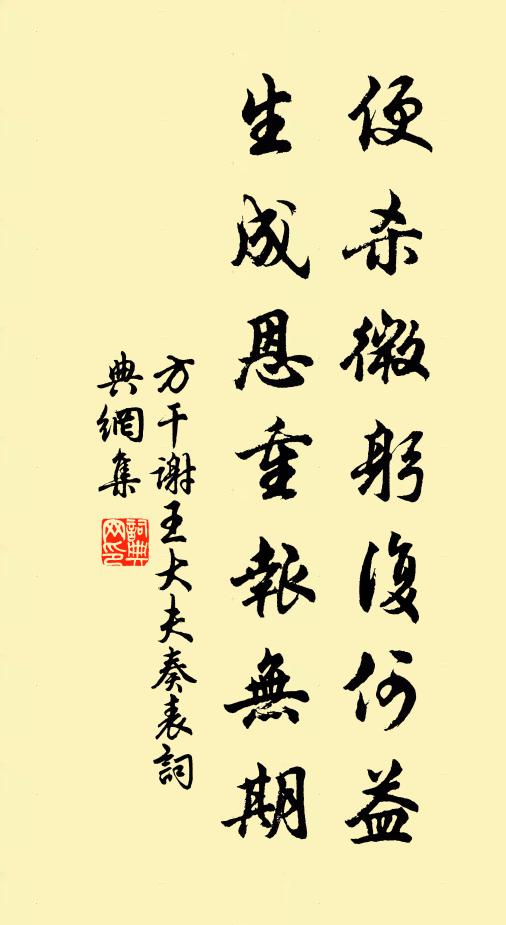 便杀微躬復何益
生成恩重報無期
方干謝王大夫奏表詞
典網集
詞典网印